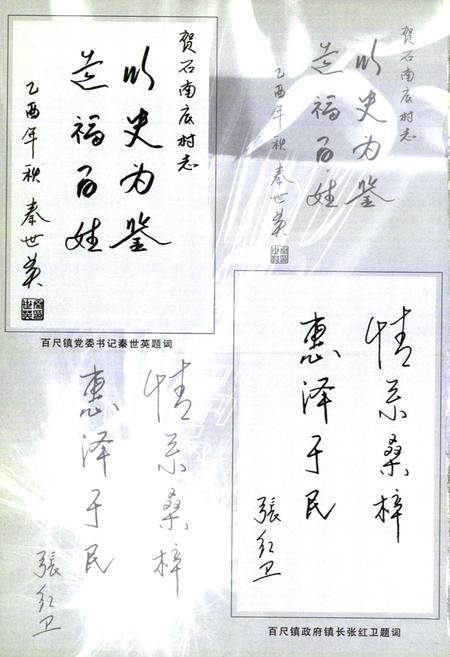 贺石南底村志
以史为鉴
造福百姓
乙酉年秋 秦世英
百尺镇党委书记秦世英题词
贺石南底村志
以史为鉴
造福百姓
乙酉年秋 秦世英
情系桑梓
惠泽于民
張红卫
百尺镇政府镇长张红卫题词
情系桑梓
惠泽于民
張红卫